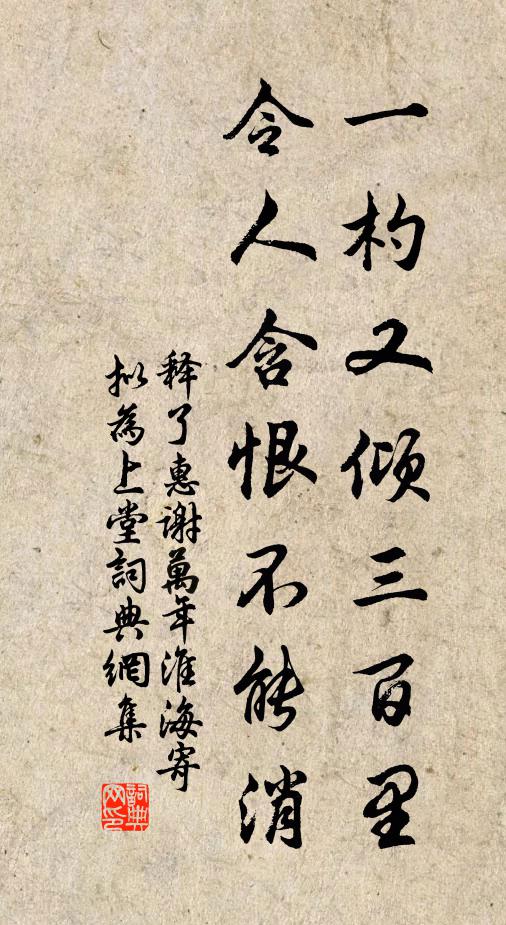 一杓又傾三百里
令人含恨不能消
释了惠谢萬年淮海寄
拟為上堂詞典網集
詞典
网印